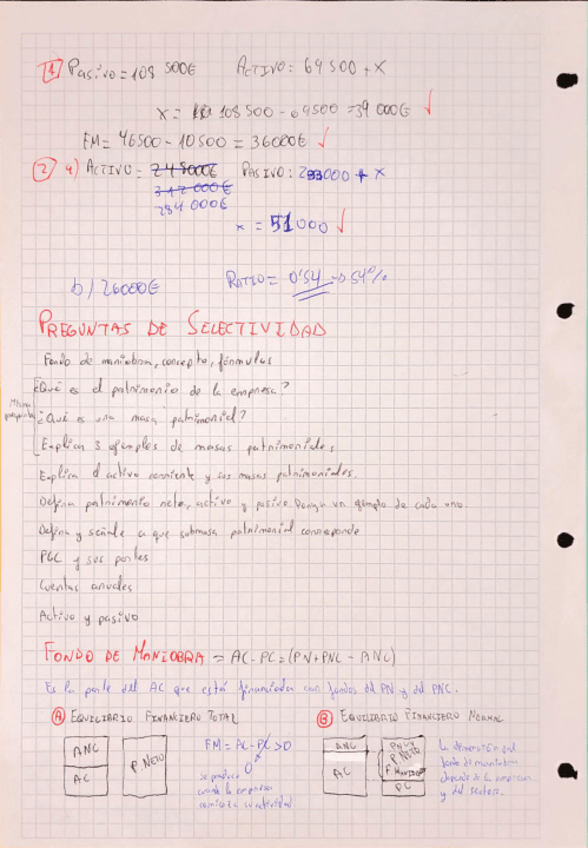 1 Pasivo = 108 500€ Activo: 69 500 + X
X = 108 500 - 69500 = 39 000€ √
FM = 46500 - 10 500 = 36000€ √
2 a) Activo: 248000€ Pasivo: 233000 + X
312 000€
284 000€
x = 51000 √
b) 26000€ Ratio = 0'54 → 54%
Preguntas de Selectividad
Fondo de maniobra, concepto, fórmulas
¿Qué es el patrimonio de la empresa?
Misma pregunta
¿Qué es una masa patrimonial?
Explica 3 ejemplos de masas patrimoniales
Explica el activo corriente y sus masas patrimoniales.
Defina patrimonio neto, activo y pasivo. Ponga un ejemplo de cada uno.
Defina y señale a que submasa patrimonial corresponde
PGC y sus partes
Cuentas anuales
Activo y pasivo
Fondo de Maniobra = AC - PC = (PN + PNC - ANC)
Es la parte del AC que está financiada con fondos del PN y del PNC.
A Equilibrio Financiero Total B Equilibrio Financiero Normal
ANC
AC
P. Neto
FM = AC - PC > 0
0
se produce cuando la empresa comienza su actividad
ANC
AC
P. Neto
F. Maniobra
PC
La dimensión del fondo de maniobra depende de la empresa y del sector.